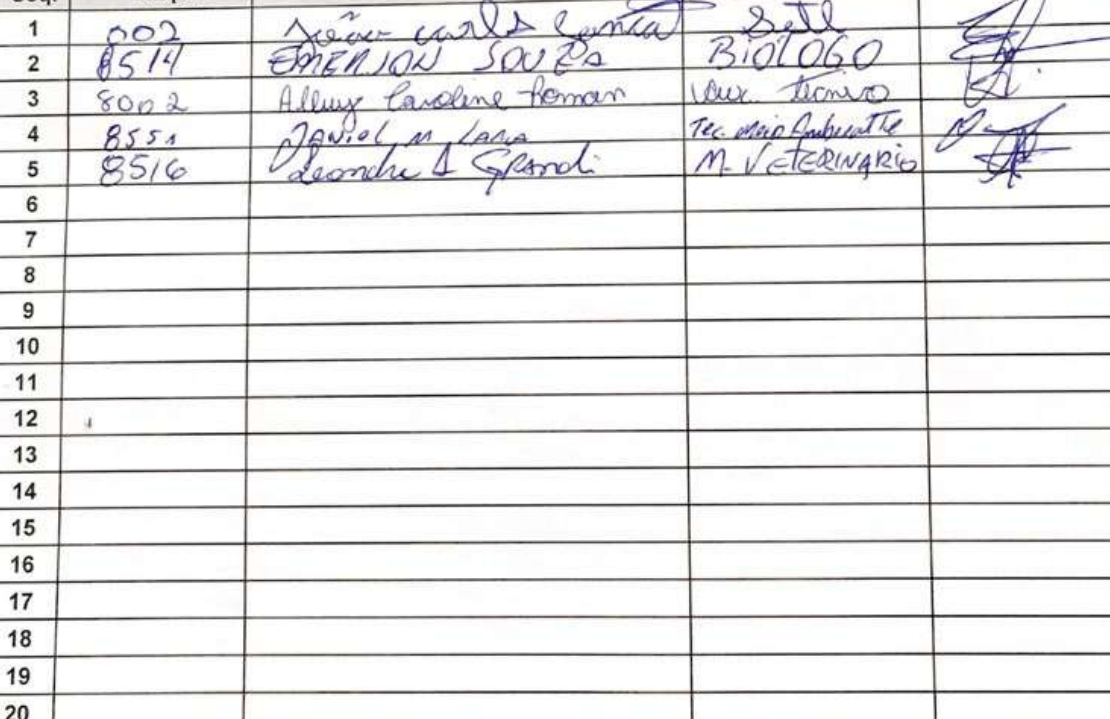 1 002 João Carlos Setl
2 8514 EMERSON SOUZA BIÓLOGO
3 8002 Caroline Roman Aux. Técnico
4 8551 Daniel M Lara Tec. Meio Ambiente
5 8516 Leandro A Grandi M. VETERINÁRIO
6
7
8
9
10
11
12
13
14
15
16
17
18
19
20